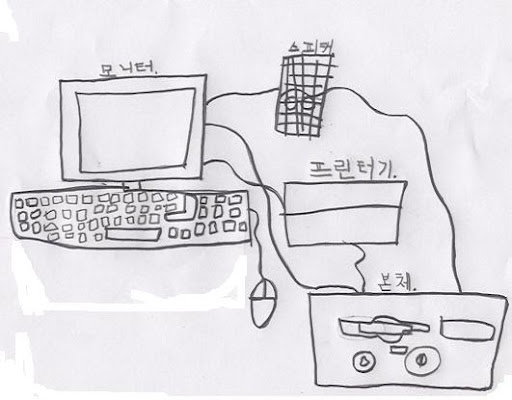 모니터.
스피커.
프린터기.
본체.